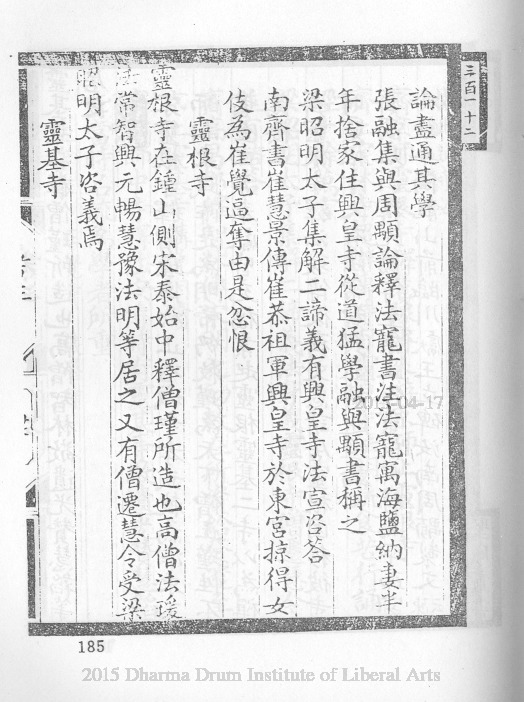 三百一十二
論盡通其學
張融集與周顒論釋法寵書注法寵寓海鹽納妻半
年捨家住興皇寺從道猛學融與顒書稱之
梁昭明太子集解二諦義有興皇寺法宣咨荅
南齊書崔慧景傳崔恭祖軍興皇寺於東宮掠得女
伎為崔覺逼奪由是忿恨
靈根寺
靈根寺在鍾山側宋泰始中釋僧瑾所造也高僧法瑗
法常智興元暢慧豫法明等居之又有僧遷慧令受梁
昭明太子咨義焉
靈基寺
185
2015 Dharma Drum Institute of Liberal Arts